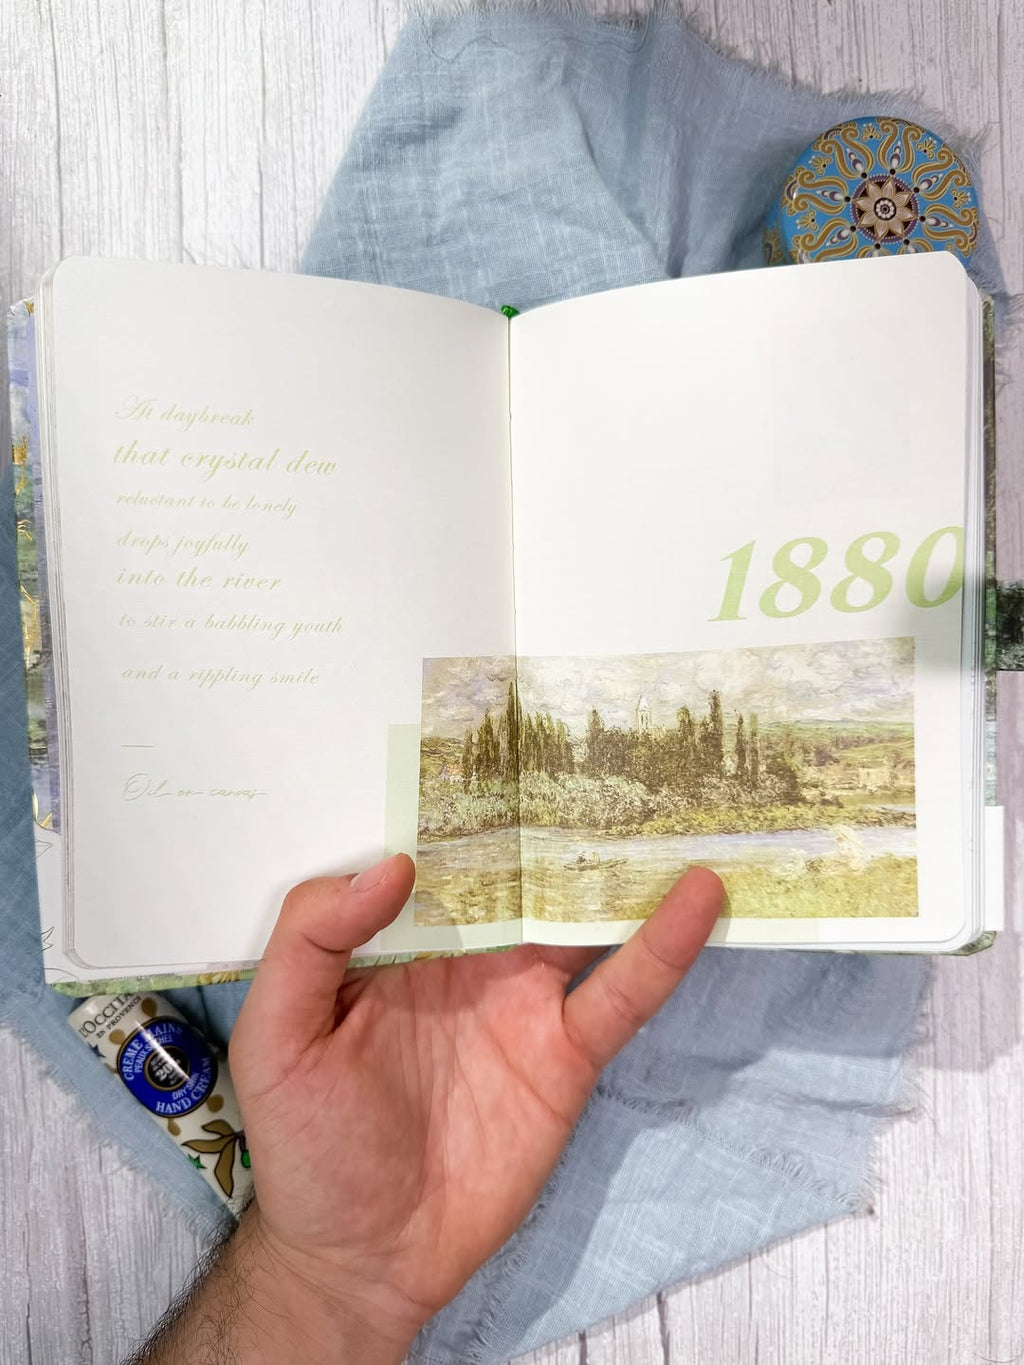 At daybreak
that crystal dew
reluctant to be lonely
drops joyfully
into the river
to stir a babbling youth
and a rippling smile
Oil on canvas
1880
L'OCCITANE
EN PROVENCE
CRÈME MAINS
PEAUX SÈCHES
DRY SKIN
HAND CREAM